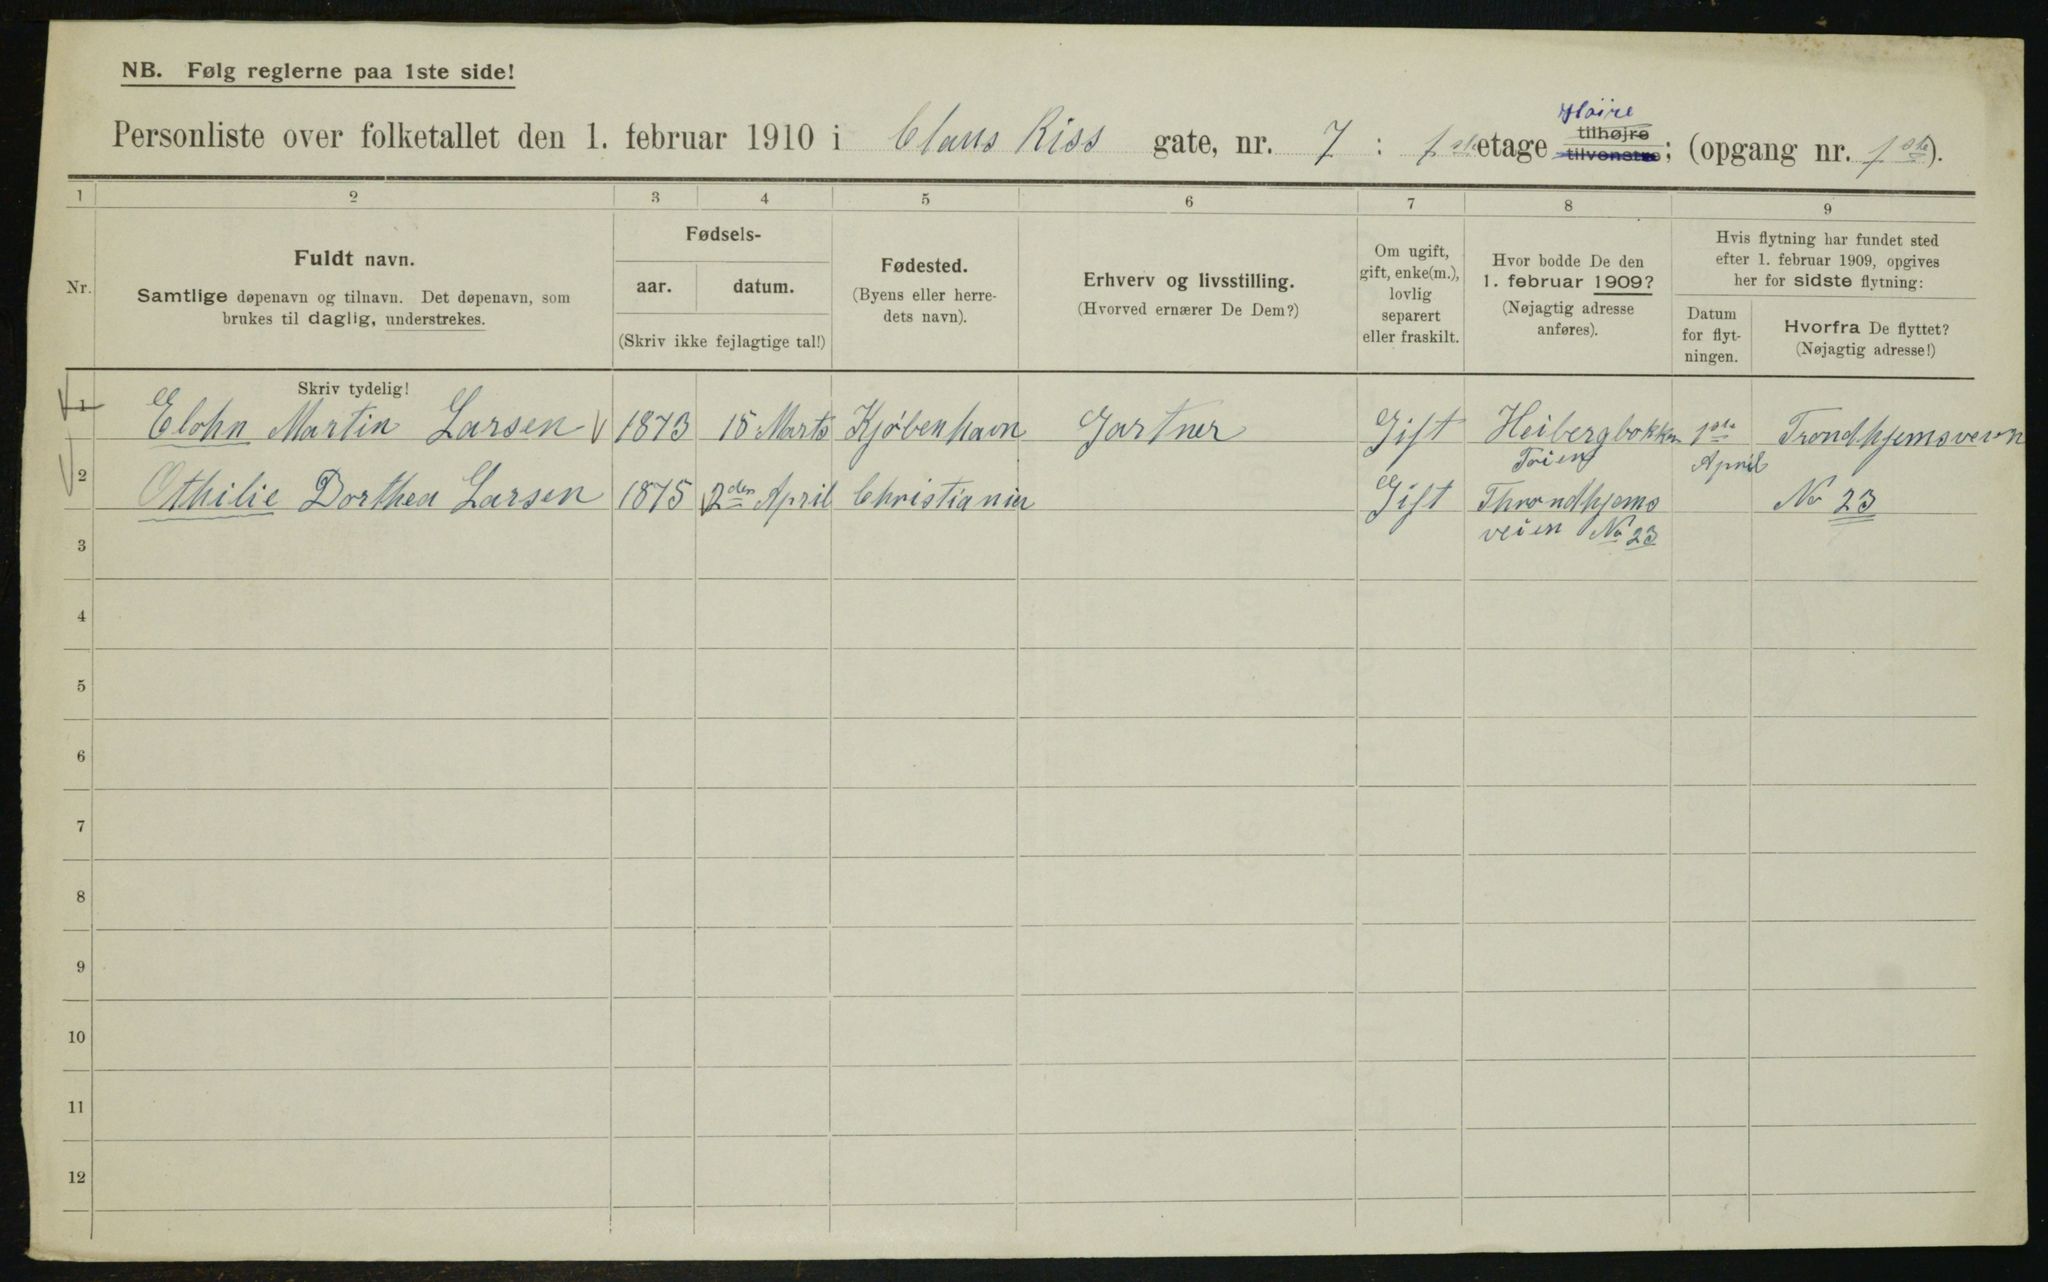 NB. Følg reglerne paa 1ste side!
Høire
Personliste over folketallet den 1. februar 1910 i Claus Riss gate, nr. 7 : 1ste etage tilhøjre tilvenstre; (opgang nr. 1ste).
1 2 3 4 5 6 7 8 9
Nr.
Fuldt navn.
Samtlige døpenavn og tilnavn. Det døpenavn, som
brukes til daglig, understrekes.
Skriv tydelig!
Fødsels-
aar. datum.
(Skriv ikke fejlagtige tal!)
Fødested.
(Byens eller herre-
dets navn).
Erhverv og livsstilling.
(Hvorved ernærer De Dem?)
Om ugift,
gift, enke(m.),
lovlig
separert
eller fraskilt.
Hvor bodde De den
1. februar 1909?
(Nøjagtig adresse
anføres).
Hvis flytning har fundet sted
efter 1. februar 1909, opgives
her for sidste flytning:
Datum
for flyt-
ningen.
Hvorfra De flyttet?
(Nøjagtig adresse!)
1 Elohn Martin Larsen 1873 15 Marts Kjøbenhavn Gartner Gift Heibergbokken 1ste Trondhjemsveien
Tøien April
2 Othilie Dorthea Larsen 1875 2den April Christiania Gift Throndhjems No 23
veien No 23
3
4
5
6
7
8
9
10
11
12